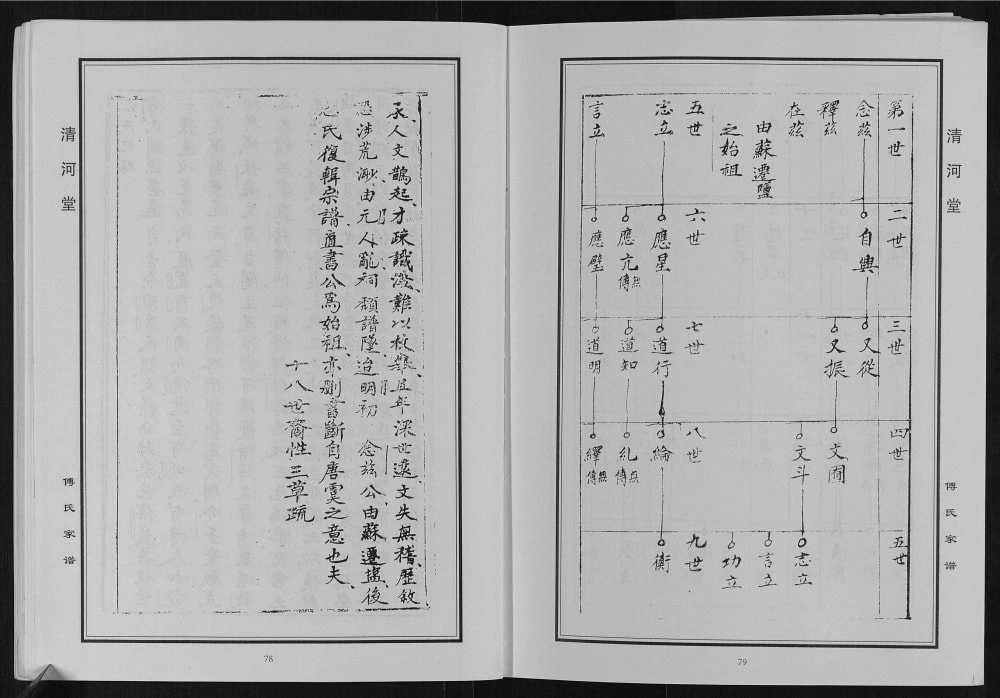 清河堂
傅氏家谱
承人文鵲起才疎識淺難以枚舉且年深世遠文失無稽歷敘
恐涉荒渺由元人亂祠頹譜墜迨明初 念茲公由蘇遷鹽後
氏復輯宗譜直書公爲始祖亦刪書斷自唐虞之意也夫
十八世裔性三草疏
78
清河堂
傅氏家谱
第一世 二世 三世 四世 五世
念茲 自興 又從
釋茲 又振 文閫
在茲 文斗 志立
由蘇遷鹽 言立
之始祖 功立
五世 六世 七世 八世 九世
志立 應星 道行 綸 衡
應亢 無傳 道知 糺 無傳
言立 應璧 道明 繹 無傳
79